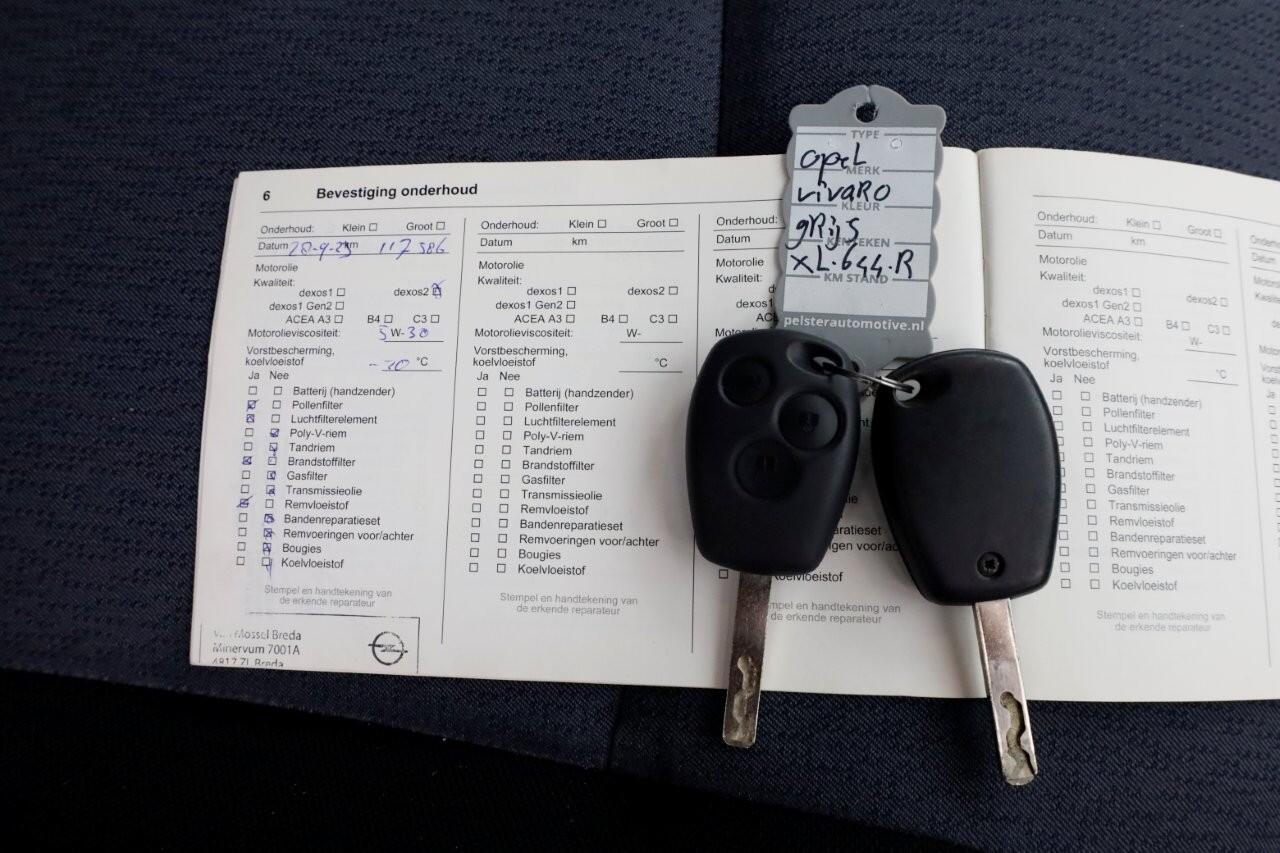 6 Bevestiging onderhoud
Onderhoud: Klein ☐ Groot ☐
Datum 28-9-23 km 117386
Motorolie
Kwaliteit:
dexos1 ☐ dexos2 ☒
dexos1 Gen2 ☐
ACEA A3 ☐ B4 ☐ C3 ☐
Motorolieviscositeit: 5 W-30
Vorstbescherming,
koelvloeistof -30 °C
Ja Nee
Batterij (handzender)
Pollenfilter
Luchtfilterelement
Poly-V-riem
Tandriem
Brandstoffilter
Gasfilter
Transmissieolie
Remvloeistof
Bandenreparatieset
Remvoeringen voor/achter
Bougies
Koelvloeistof
Stempel en handtekening van
de erkende reparateur
Mossel Breda
Minervum 7001A
4817 ZL Breda
Onderhoud: Klein ☐ Groot ☐
Datum km
Motorolie
Kwaliteit:
dexos1 ☐ dexos2 ☐
dexos1 Gen2 ☐
ACEA A3 ☐ B4 ☐ C3 ☐
Motorolieviscositeit: W-
Vorstbescherming,
koelvloeistof °C
Ja Nee
Batterij (handzender)
Pollenfilter
Luchtfilterelement
Poly-V-riem
Tandriem
Brandstoffilter
Gasfilter
Transmissieolie
Remvloeistof
Bandenreparatieset
Remvoeringen voor/achter
Bougies
Koelvloeistof
Stempel en handtekening van
de erkende reparateur
Onderhoud:
Datum
Motorolie
Kwaliteit:
dexos1
dexos1
mpel en handtekening van
de erkende reparateur
TYPE
Opel
MERK
vivaRO
KLEUR
gRijs
KENTEKEN
XL.644.R
KM STAND
pelsterautomotive.nl
Onderhoud: Klein ☐ Groot ☐
Datum km
Motorolie
Kwaliteit:
dexos1 ☐ dexos2 ☐
dexos1 Gen2 ☐
ACEA A3 ☐ B4 ☐ C3 ☐
Motorolieviscositeit: W-
Vorstbescherming,
koelvloeistof °C
Ja Nee
Batterij (handzender)
Pollenfilter
Luchtfilterelement
Poly-V-riem
Tandriem
Brandstoffilter
Gasfilter
Transmissieolie
Remvloeistof
Bandenreparatieset
Remvoeringen voor/achter
Bougies
Koelvloeistof
Stempel en handtekening van
de erkende reparateur